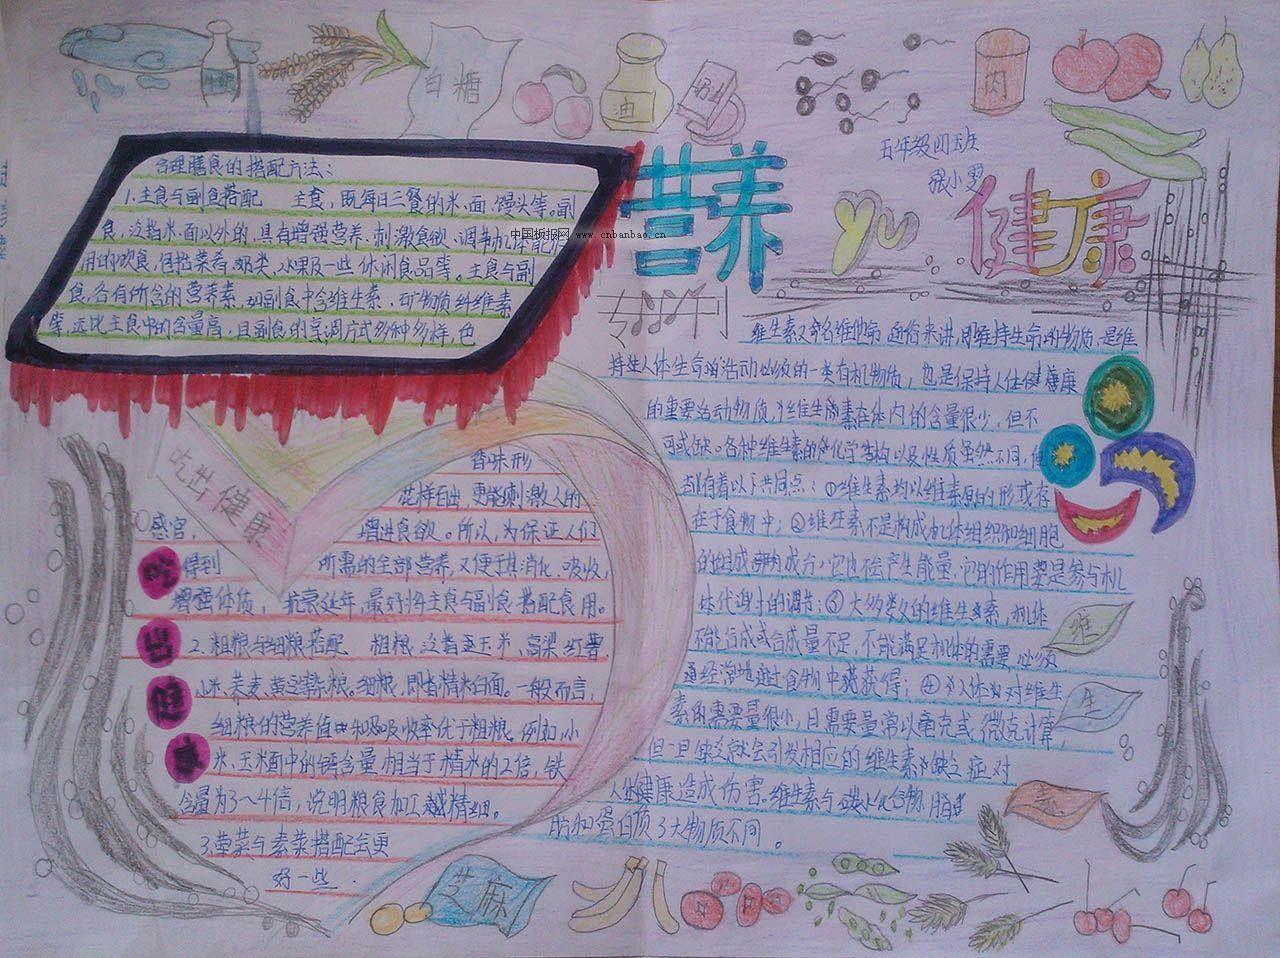 白糖
油
奶粉
肉
五年级四班
张小雯
营养
yu
健康
专刊
中国板报网 www.cnbanbao.cn
合理膳食的搭配方法：
1.主食与副食搭配 主食，既每日三餐的米、面、馒头等。副
食，没指米、面以外的，具有增强营养、刺激食欲、调节机体
用的饮食，包括菜肴、奶类、水果及一些休闲食品等。主食与副
食，各有所含的营养素，如副食中含维生素、矿物质纤维素
等，远比主食中的含量高，且副食的烹调方式多种多样，色
吃出健康
香味形
花样百出 更能刺激人的
感官， 增进食欲。所以，为保证人们
得到 所需的全部营养，又便于其消化、吸收，
增强体质， 抗衰延年，最好将主食与副食搭配食用。
2.粗粮与细粮搭配 粗粮，这指玉米、高粱、红薯、
小米、荞麦、黄豆等杂粮。细粮，即指精米白面。一般而言，
细粮的营养值和吸收率优于粗粮。例如，小
米、玉米面中的钙含量相当于精米的2倍，铁
含量为3~4倍，说明粮食加工越精细。
3.荤菜与素菜搭配会更
好一些．
吃
出
健
康
维生素又名维他命 通俗来讲，即维持生命的物质，是维
持生人体生命的活动必须的一类有机物质，也是保持人体健康
的重要活动物质，维生素在体内的含量很少，但不
可或缺。各种维生素的化学结构以及性质虽然不同，但
却有着以下共同点：①维生素均以维生素原的形式存
在于食物中；②维生素不是构成机体组织和细胞
的组成成分，它也不会产生能量，它的作用要是参与机
体代谢的调节；③大多数的维生素，机体
不能合成或合成量不足，不能满足机体的需要，必须
通经常地通过食物中获得；④人体对维生
素的需要量很小，日需要量常以毫克或微克计算，
但一旦缺乏就会引发相应的维生素缺乏症 对
人体健康造成伤害。维生素与碳水化合物、脂
肪和蛋白质3大物质不同。
维
生
素
芝麻